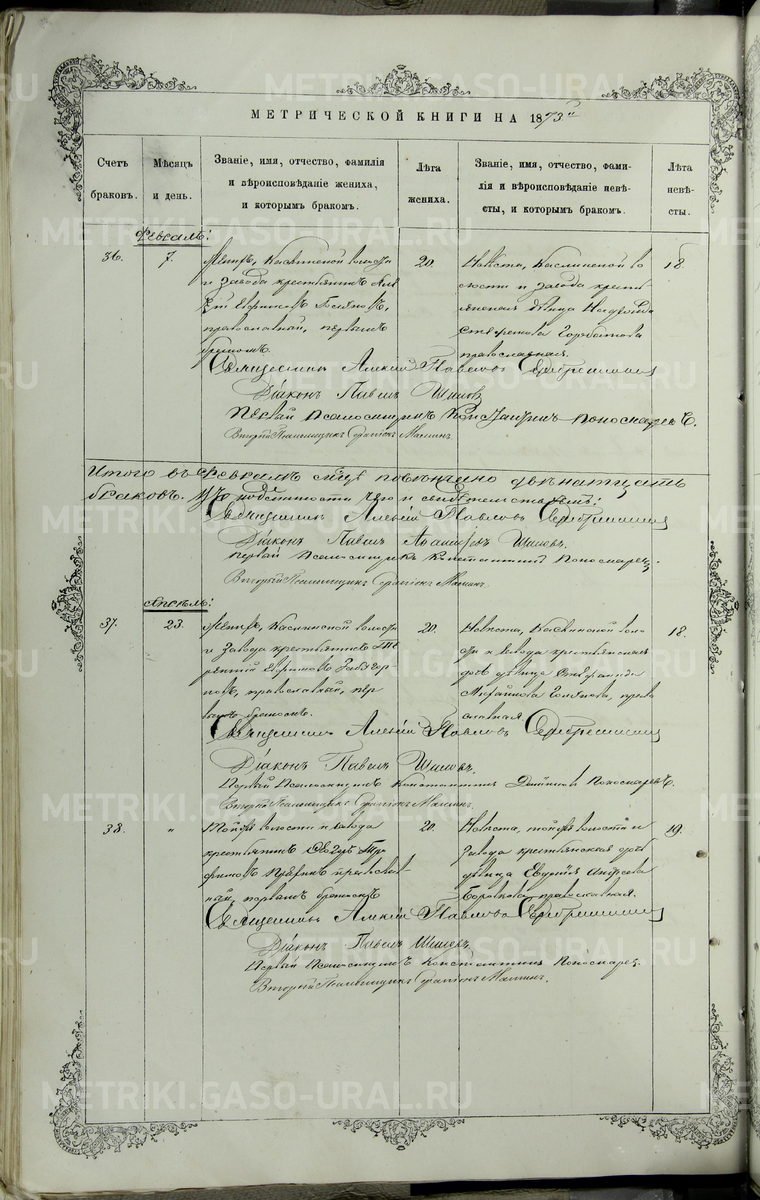 МЕТРИЧЕСКОЙ КНИГИ НА 1873й
Счетъ браковъ.
Мѣсяцъ и день.
Званіе, имя, отчество, фамилія и вѣроисповѣданіе жениха, и которымъ бракомъ.
Лѣта жениха.
Званіе, имя, отчество, фамилія и вѣроисповѣданіе невѣсты, и которымъ бракомъ.
Лѣта невѣсты.
Февраль:
36.
7.
Каслинской волости
и завода крестьянинъ
православный, первымъ
бракомъ.
20.
Невѣста, Каслинской во
лости и завода кресть
янская дѣвица
Горбатова
православная.
18.
Священникъ Алексій Павловъ Серебренниковъ
Діаконъ Павелъ Шиловъ
Первый Псаломщикъ Константинъ Пономаревъ.
Второй Псаломщикъ Серапіонъ Мамин.
Итого въ Февралѣ м-цѣ повѣнчано двѣнатцать
браковъ.
Священникъ Алексій Павловъ Серебренниковъ
Діаконъ Павелъ Шиловъ.
Первый Псаломщикъ Константинъ Пономарев.
Второй Псаломщикъ Серапіонъ Мамин.
Апрѣль:
37.
23.
Каслинской волости
и завода крестьянинъ Те
рентій
православный, пер
вымъ бракомъ.
20.
Невѣста, Каслинской воло
сти и завода крестьянская
дочь дѣвица
право
славная
18.
Священникъ Алексій Павловъ Серебренниковъ
Діаконъ Павелъ Шиловъ.
Первый Псаломщикъ Константинъ Пономаревъ.
Второй Псаломщикъ Серапіонъ Мамин.
38.
"
Тойже волости и завода
крестьянинъ
православ
ный, первымъ бракомъ
20.
Невѣста, тойже волости и
завода крестьянская дочь
дѣвица
православная.
19.
Священникъ Алексій Павловъ Серебренниковъ
Діаконъ Павелъ Шиловъ.
Первый Псаломщикъ Константинъ Пономарев
Второй Псаломщикъ Серапіонъ Мамин.
METRIKI.GASO-URAL.RU